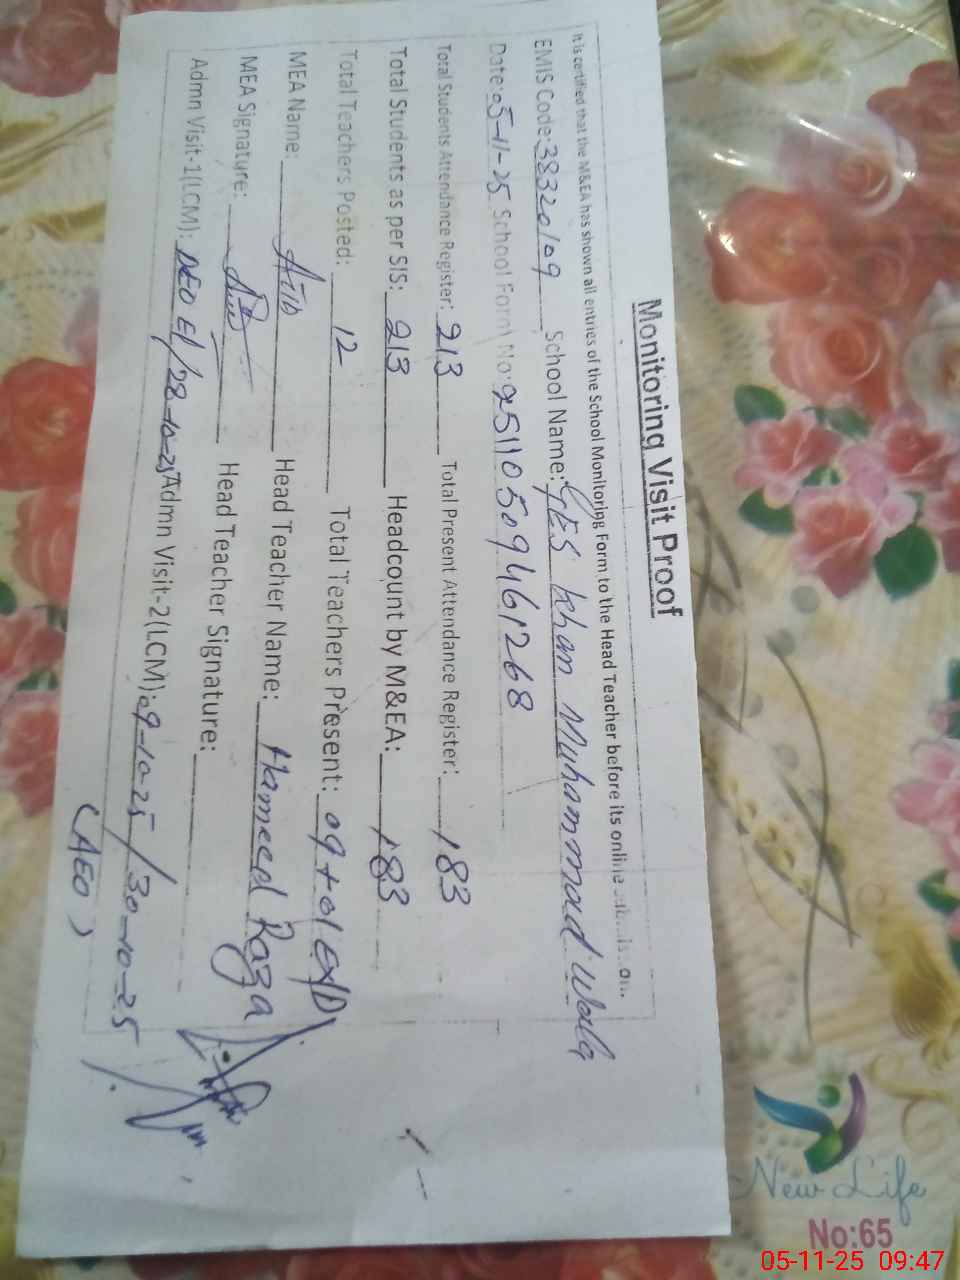 Monitoring Visit Proof
It is certified that the M&EA has shown all entries of the School Monitoring Form to the Head Teacher before its online submission.
EMIS Code: 38320109 School Name: GES Khan Muhammad Wala
Date: 05-11-25 School Form No: 25110509461268
Total Students Attendance Register: 213 Total Present Attendance Register: 183
Total Students as per SIS: 213 Headcount by M&EA: 183
Total Teachers Posted: 12 Total Teachers Present: 09+01
MEA Name: Head Teacher Name: Hameed Raza
MEA Signature: Head Teacher Signature:
Admn Visit-1(LCM): DEO EI/28-10-25 Admn Visit-2(LCM): 09-10-25/30-10-25
(AEO)
New Life
No:65
05-11-25 09:47